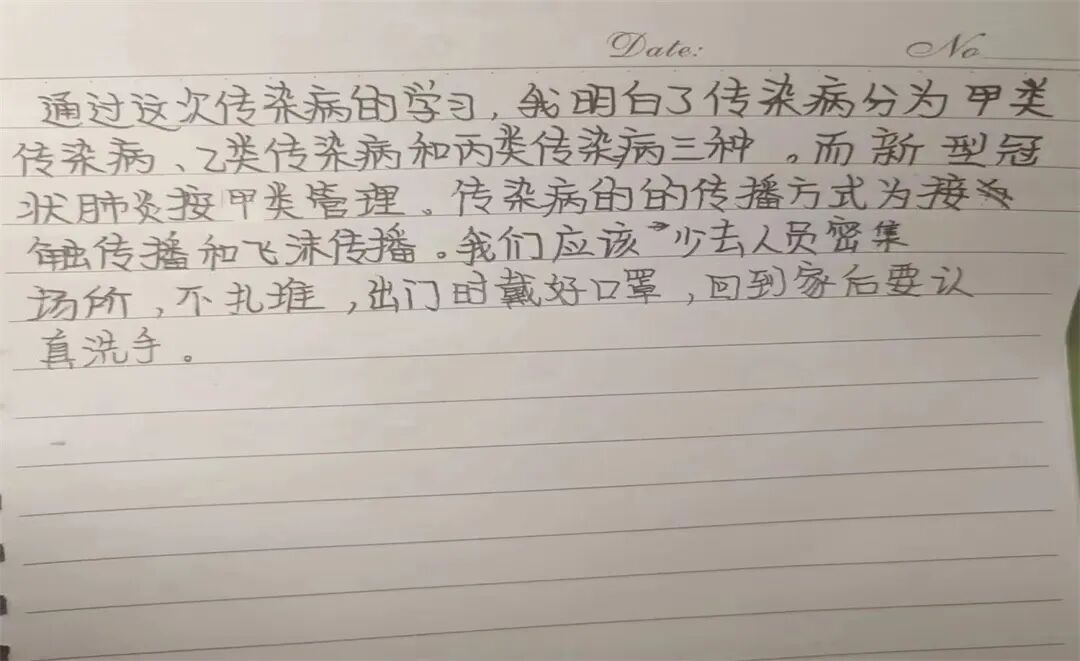 Date: No
通过这次传染病的学习,我明白了传染病分为甲类
传染病、乙类传染病和丙类传染病三种。而新型冠
状肺炎按甲类管理。传染病的的传播方式为接
触传播和飞沫传播。我们应该少去人员密集
场所,不扎堆,出门时戴好口罩,回到家后要认
真洗手。